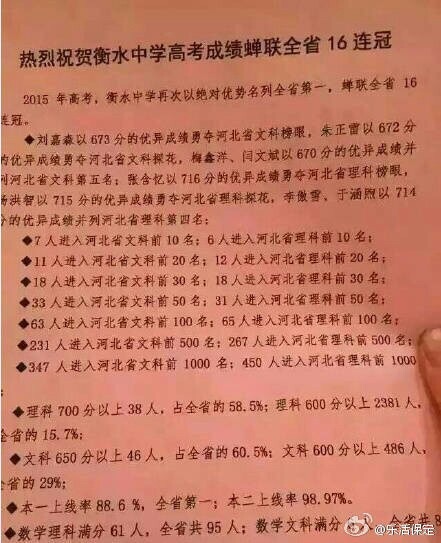 热烈祝贺衡水中学高考成绩蝉联全省 16 连冠
2015 年高考，衡水中学再次以绝对优势名列全省第一，蝉联全省 16
连冠。
◆刘嘉森以 673 分的优异成绩勇夺河北省文科榜眼，朱正雷以 672 分
的优异成绩勇夺河北省文科探花，梅鑫洋、闫文斌以 670 分的优异成绩并
列河北省文科第五名；张含忆以 716 分的优异成绩勇夺河北省理科榜眼，
杨洪智以 715 分的优异成绩勇夺河北省理科探花，李傲雪、于涵煦以 714
分的优异成绩并列河北省理科第四名；
◆7 人进入河北省文科前 10 名；6 人进入河北省理科前 10 名；
◆11 人进入河北省文科前 20 名；12 人进入河北省理科前 20 名；
◆18 人进入河北省文科前 30 名；18 人进入河北省理科前 30 名；
◆33 人进入河北省文科前 50 名；31 人进入河北省理科前 50 名；
◆63 人进入河北省文科前 100 名；65 人进入河北省理科前 100 名；
◆231 人进入河北省文科前 500 名；267 人进入河北省理科前 500 名；
◆347 人进入河北省文科前 1000 名；450 人进入河北省理科前 1000
◆理科 700 分以上 38 人，占全省的 58.5%；理科 600 分以上 2381 人，
全省的 15.7%；
◆文科 650 分以上 46 人，占全省的 60.5%；文科 600 分以上 486 人，
全省的 29%；
◆本一上线率 88.6 %，全省第一；本二上线率 98.97%。
◆数学理科满分 61 人，全省共 95 人；数学文科满分 人，全省共
@乐活保定